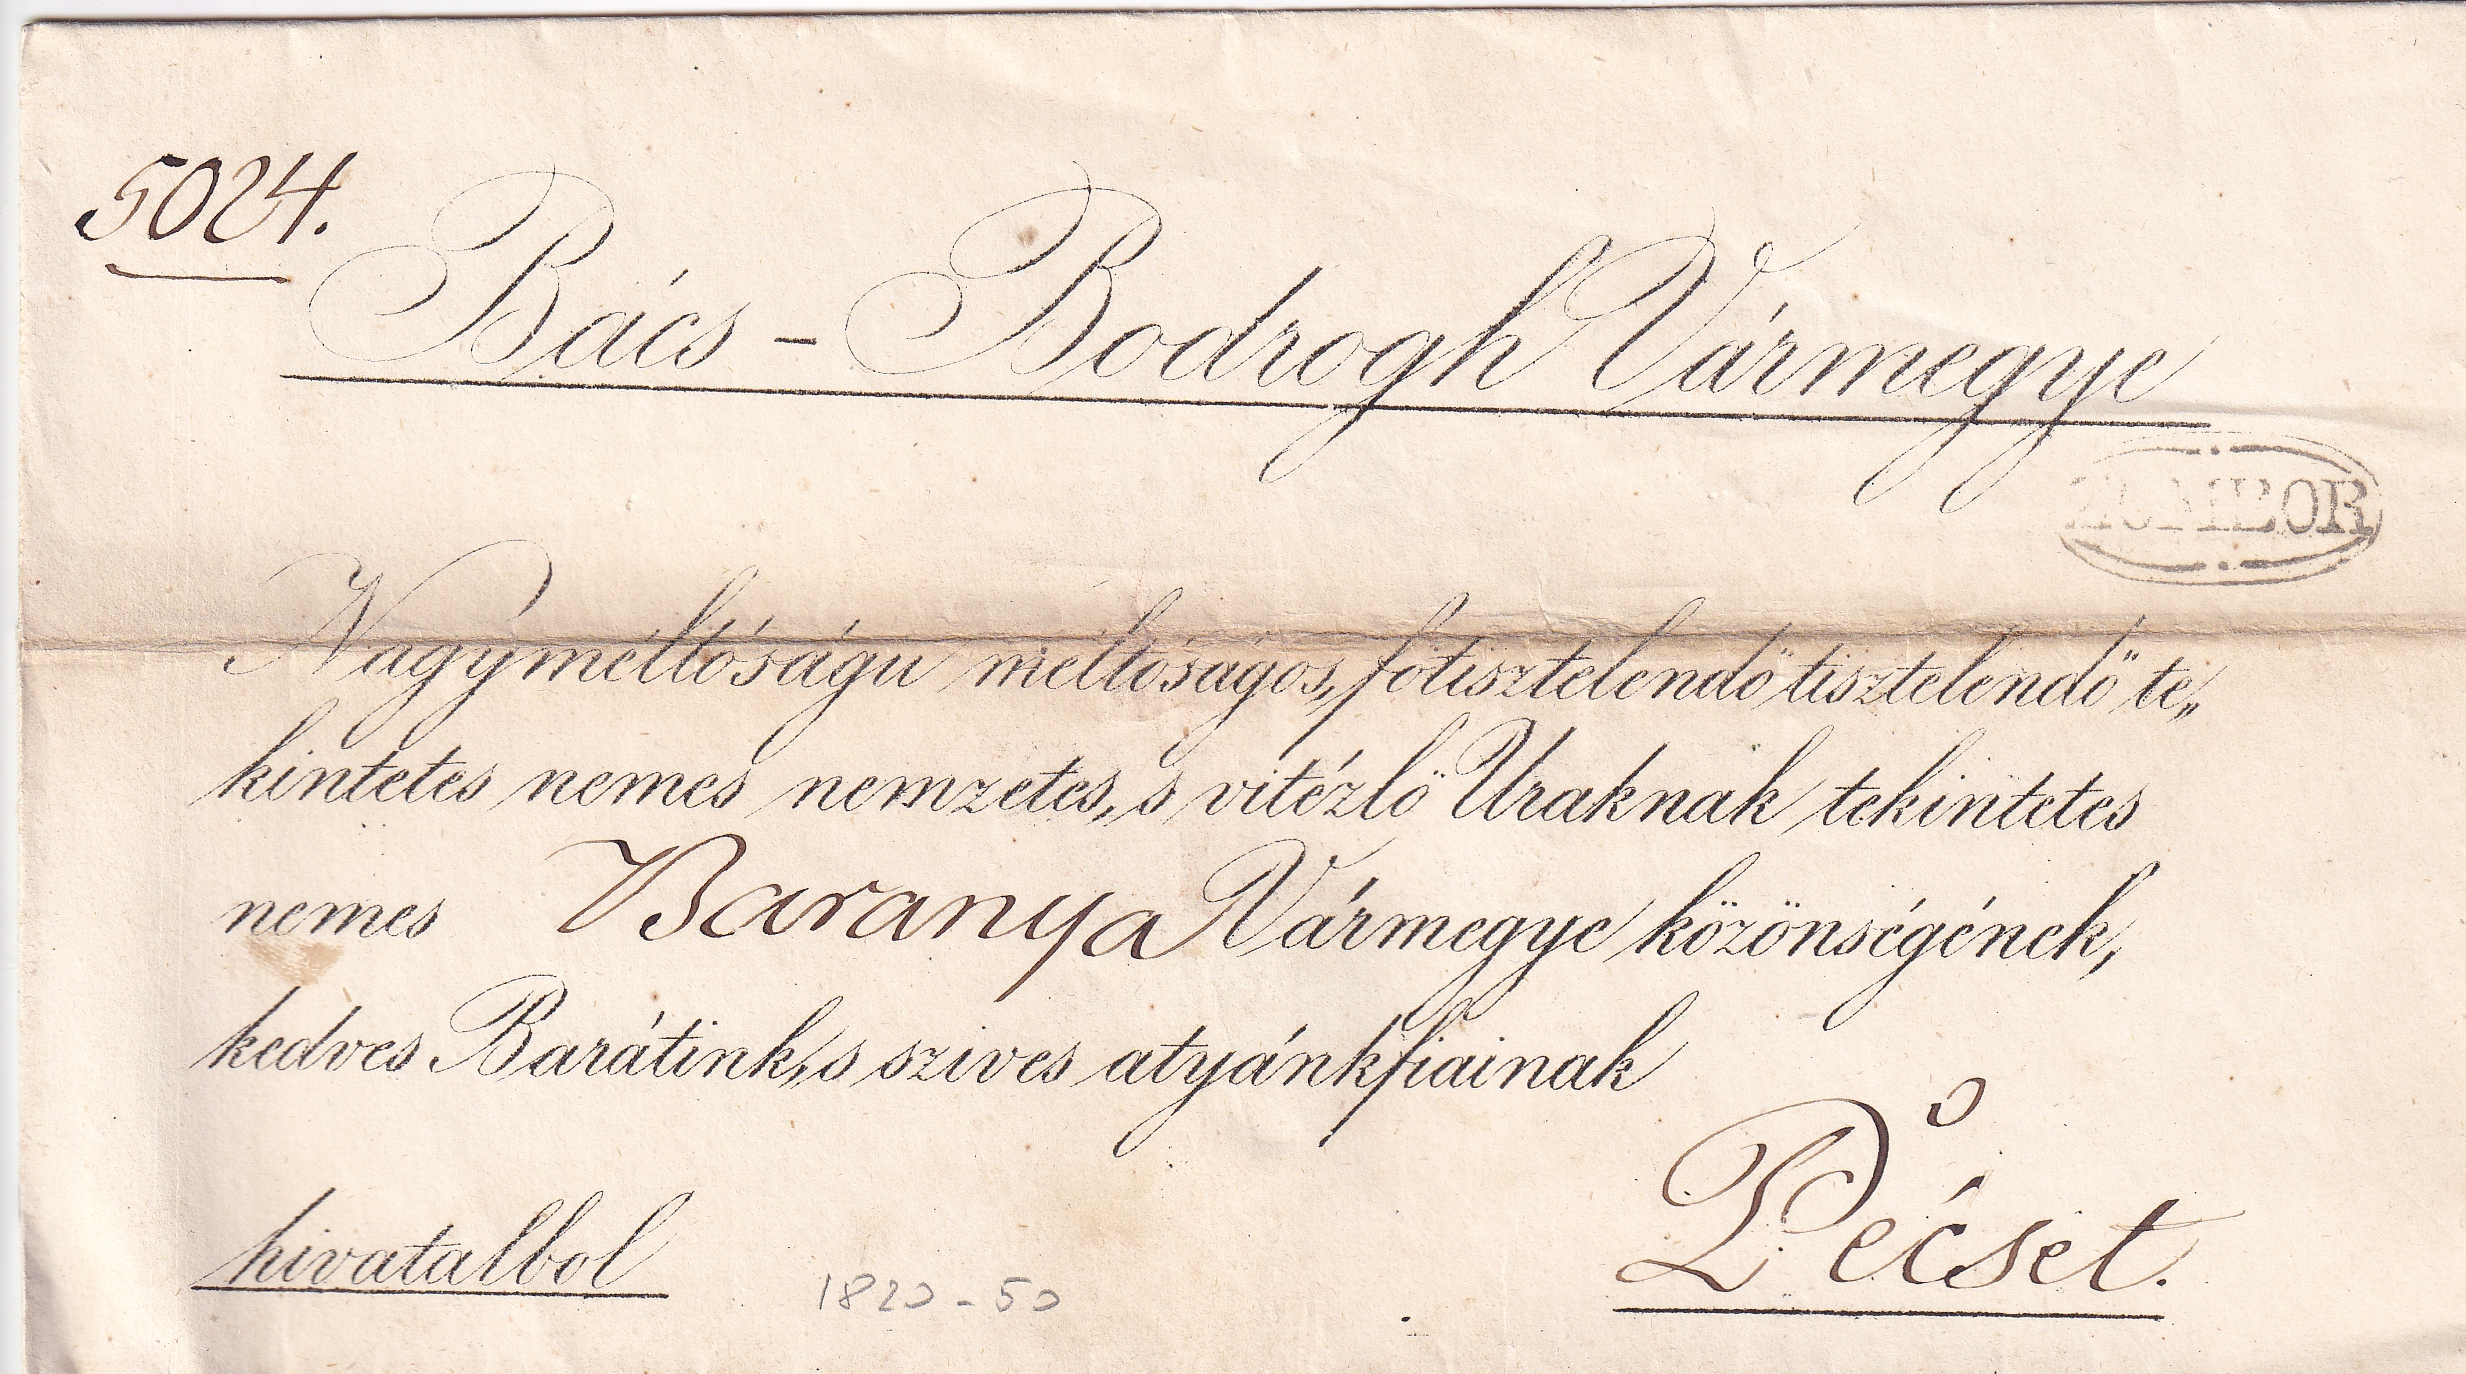 5024.
Bács - Bodrogh Vármegye
ZOMBOR
Nagyméltóságu méltóságos, főtisztelendő tisztelendő te„
kintetes nemes nemzetes, s vitézlő Uraknak tekintetes
nemes Baranya Vármegye közönségének,
kedves Barátink, s szives atyánkfiainak
Pécset.
hivatalbol
1820-50